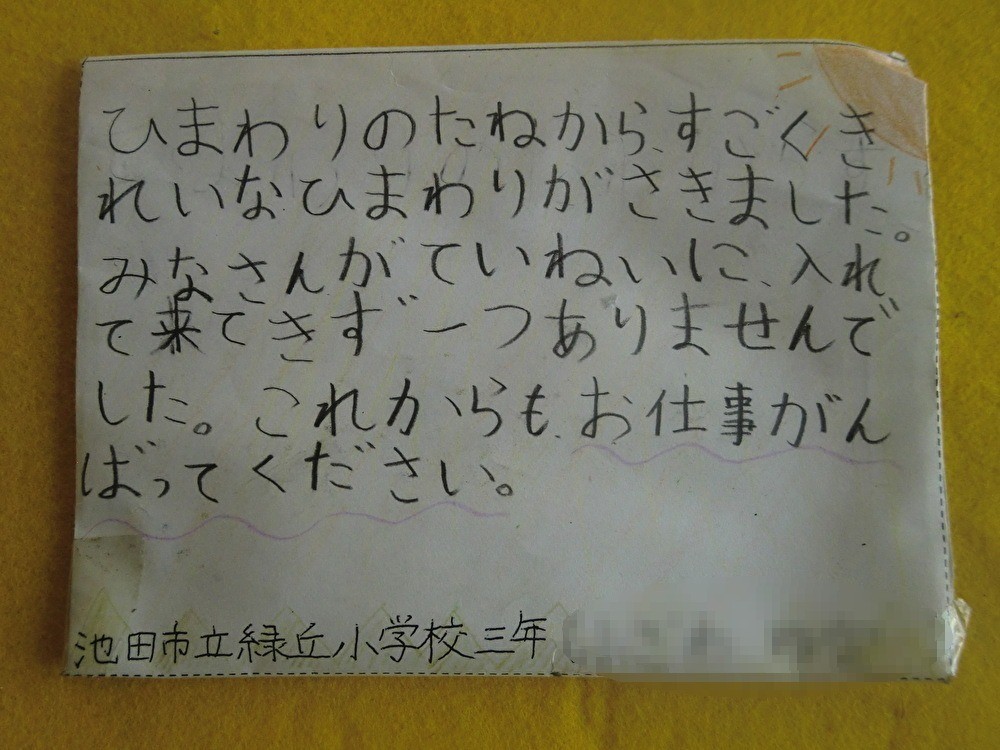 ひまわりのたねから、すごくき
れいなひまわりがさきました。
みなさんがていねいに、入れ
て来てきず一つありませんで
した。これからも、お仕事がん
ばってください。
池田市立緑丘小学校三年